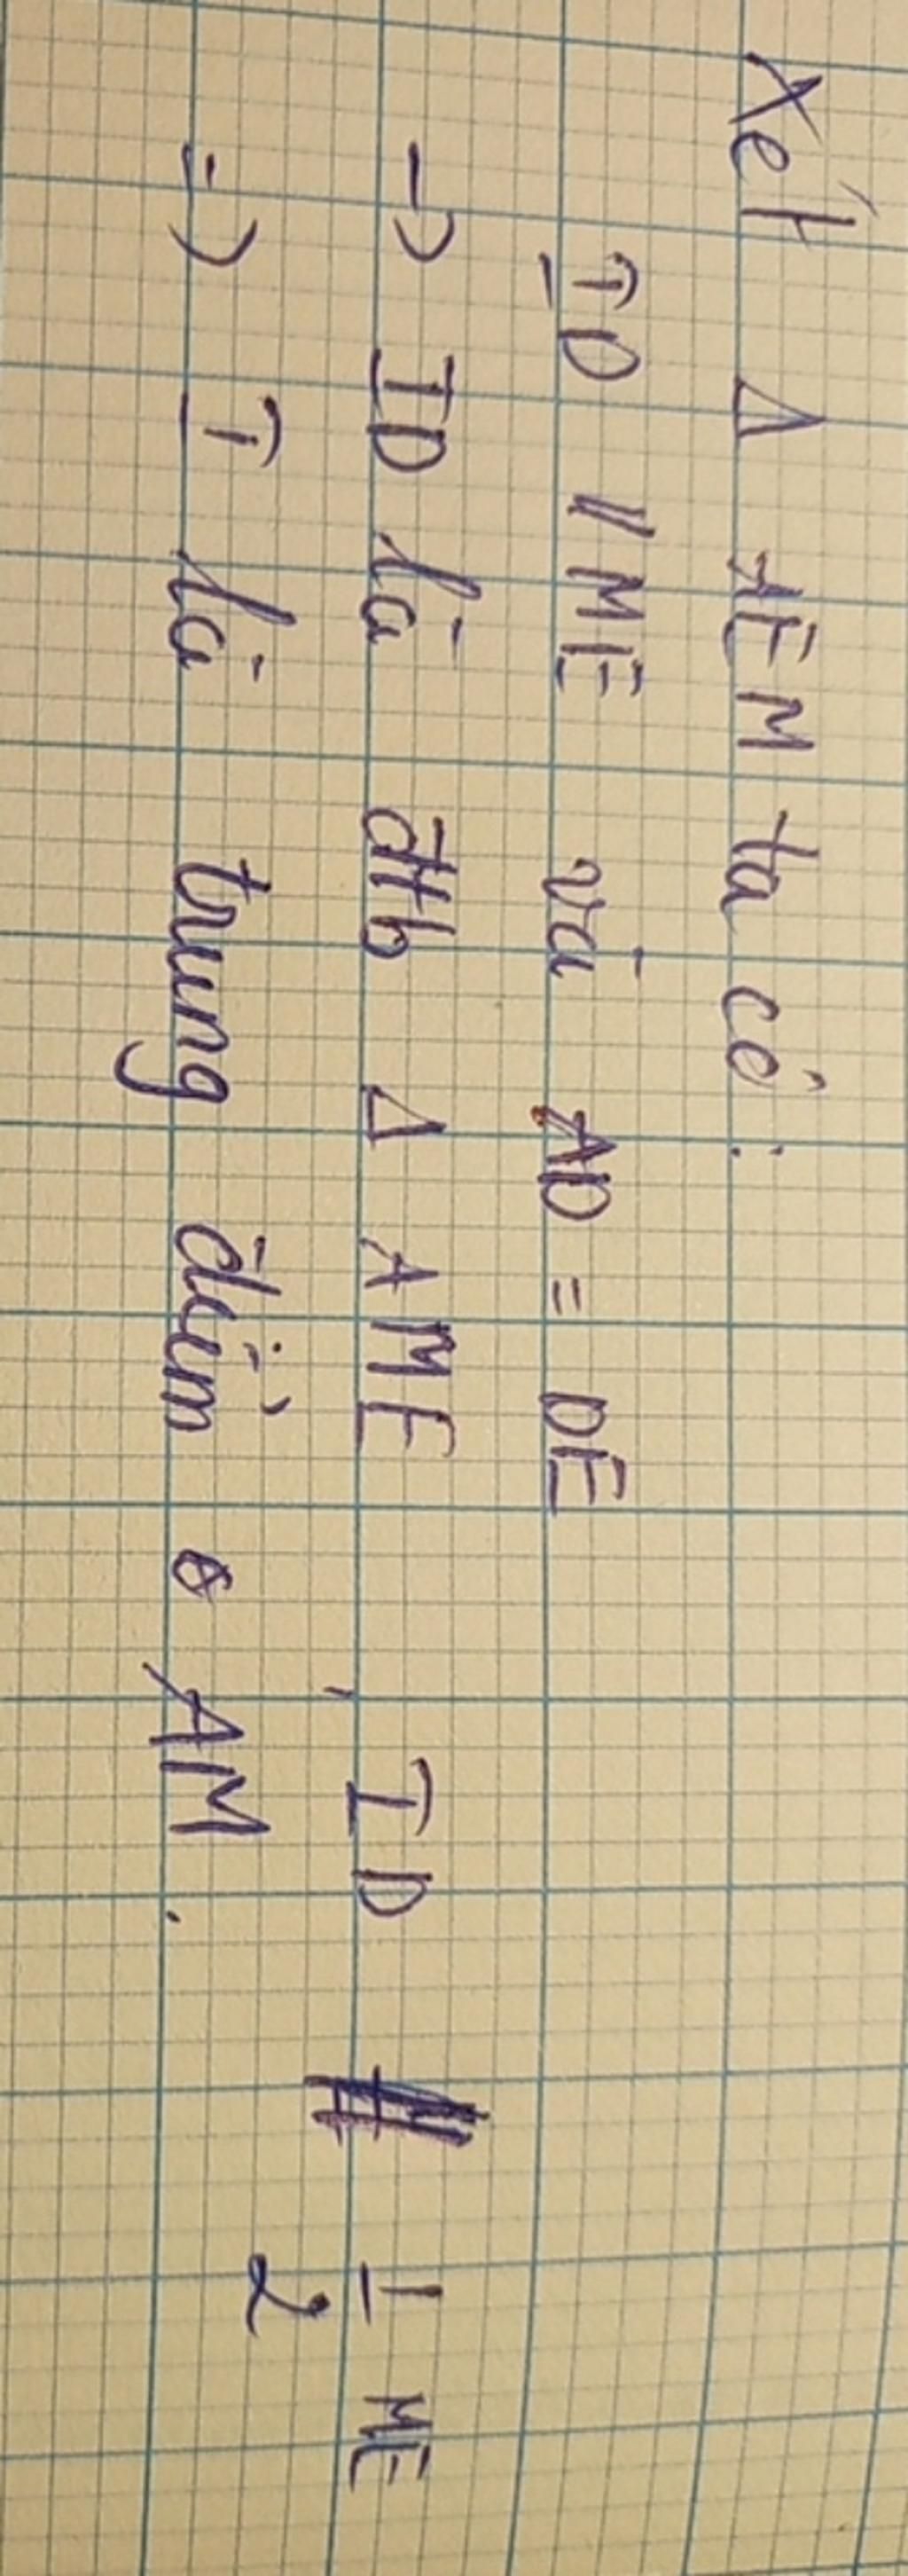 Xét Δ AEM ta có :
ID // ME và AD = DE
-> ID là đtb Δ AME , ID 1/2 ME
=> I là trung điểm AM .